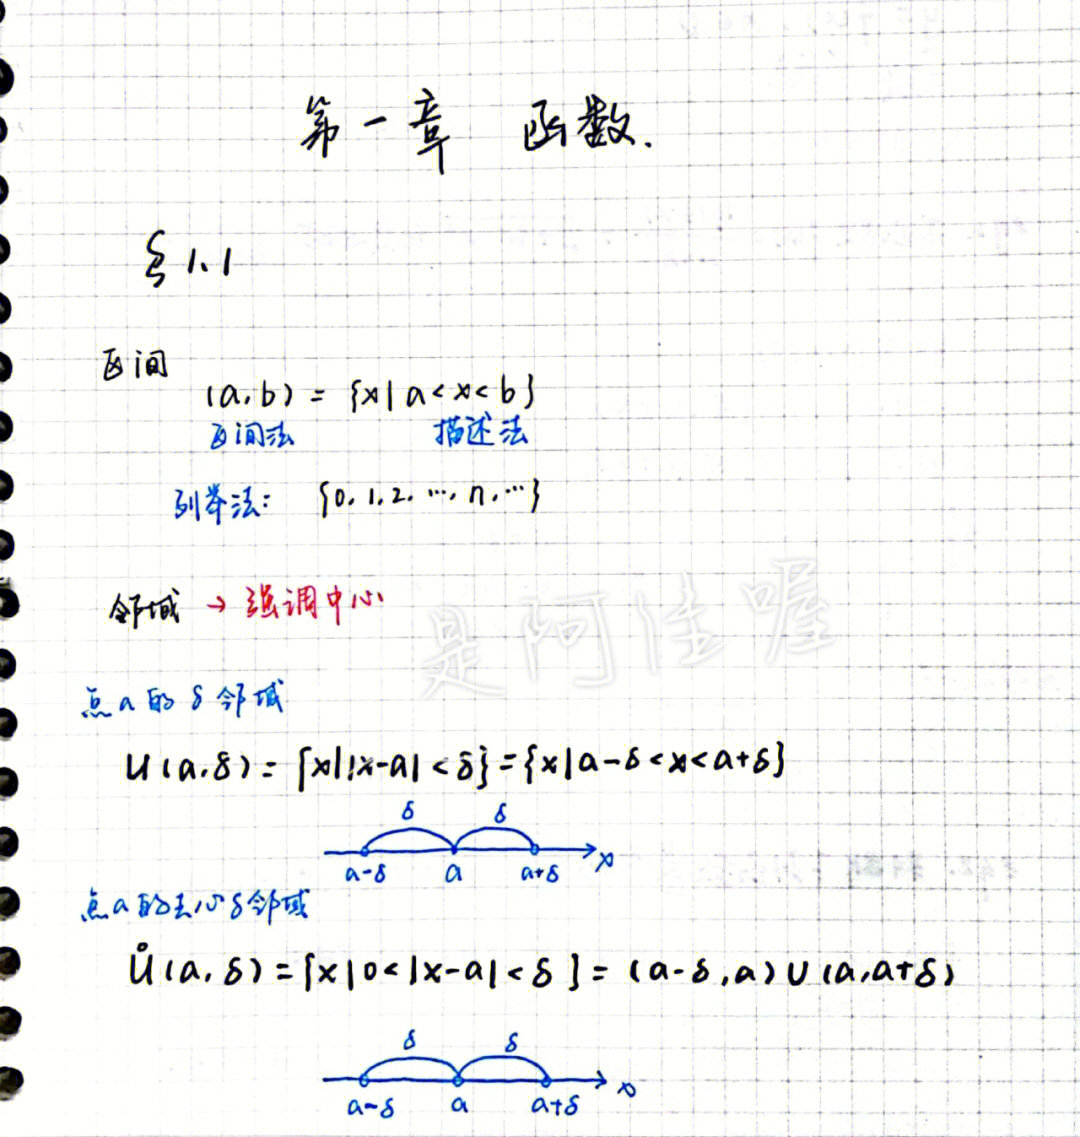 第一章 函数.
§1.1
区间
(a,b) = {x| a<x<b}
区间法 描述法
列举法: {0,1,2,…,n,…}
邻域 → 强调中心
是阿佳喔
点a的δ邻域
U(a,δ) = {x||x-a|<δ} = {x|a-δ<x<a+δ}
δ δ
a-δ a a+δ x
点a的去心δ邻域
Ů(a,δ) = {x|0<|x-a|<δ} = (a-δ,a)∪(a,a+δ)
δ δ
a-δ a a+δ x